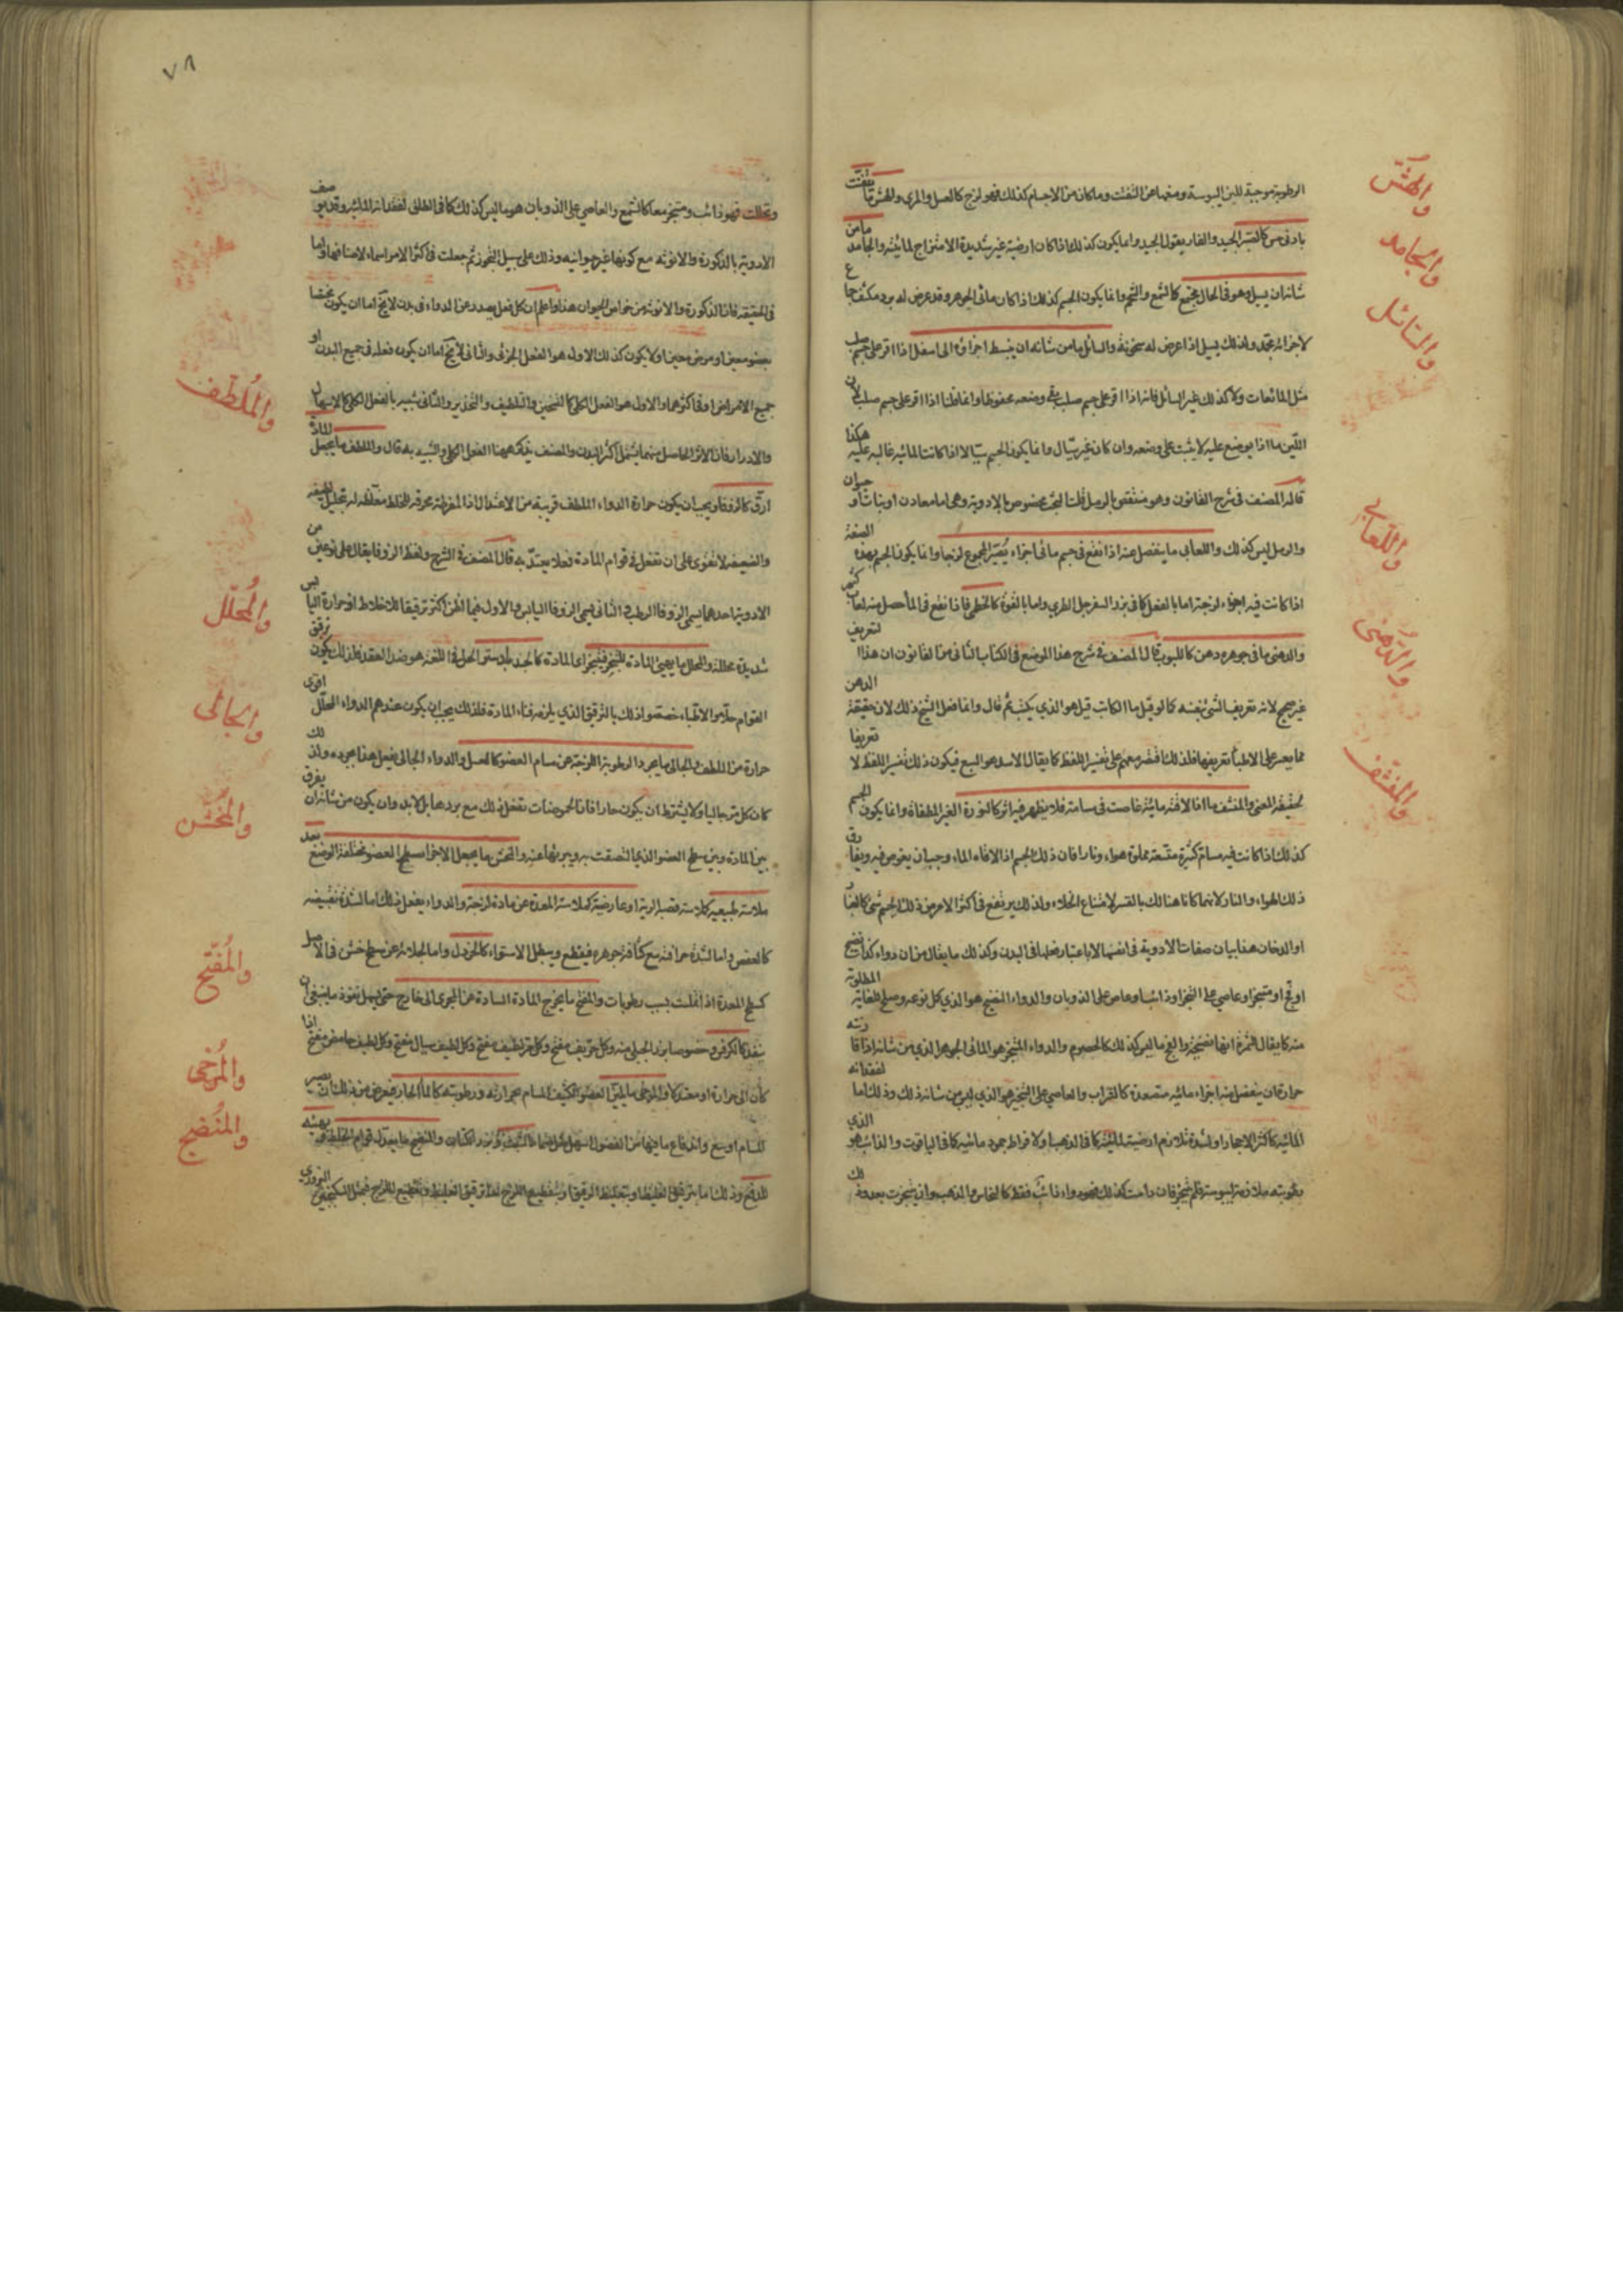 والهش
والجامد
والسائل
واللعابي
والدهني
والمنشف
الرطوبة موجبة للين اليبوسة ومنعها عن التفتت وما كان من الاجسام كذلك فهو لزج كالعسل والمري والهش ما يتفتت
بادنى مس كالصبر الجيد والغاريقون الجيد وانما يكون كذلك اذا كان ارضيته غير شديدة الامتزاج لمائيته والجامد ما من
شانه ان يسيل وهو في الحال مجتمع كالشمع والشحم وانما يكون الجسم كذلك اذا كان مائي الجوهر وقد عرض له برد مكثف جامع
لاجزائه مجمد ولذلك يسيل اذا عرض له سخونة والسائل ما من شانه ان ينبسط اجزاؤه الى اسفل اذا اقر على جسم صلب
مثل المائعات ولا كذلك غير السائل فانه اذا اقر على جسم صلب بقي وضعه محفوظا وانما قلنا اذا اقر على جسم صلب لان
اللين ما اذا يوضع عليه لا يثبت على وضعه وان كان غير سيال وانما يكون الجسم سيالا اذا كانت المائية غالبة عليه هكذا
قاله المصنف في شرح القانون وهو منتقض بالرمل قلت البحث مخصوص بالادوية وهي اما معادن او نبات او حيوان
والرمل ليس كذلك واللعابي ما ينفصل عنه اذا نقع في جسم مائي اجزاء يصير المجموع لزجا وانما يكون الجسم بهذه الصفة
اذا كانت فيه اجزاء لزجة اما بالفعل كما في بزر السفرجل الطري واما بالقوة كالخطمي فاذا نقع في الماء حصل منه لعاب كثير
والدهني ما في جوهره دهن كاللبوب قال المصنف في شرح هذا الموضع في الكتاب الثاني من القانون ان هذا التعريف
غير صحيح لانه تعريف الشئ بنفسه كما لو قيل ما الكاتب قيل هو الذي يكتب ثم قال وانما فعل الشيخ ذلك لان حقيقة الدهن
مما يعسر على الاطباء تعريفها فلذلك اقتصر معهم على تفسير اللفظ كما يقال الاسد هو السبع فيكون ذلك تفسير اللفظ لا تعريفا
لحقيقة المعنى والمنشف ما اذا لاقته مائية غاصت في مسامه فلا يظهر فيه اثر كالنورة الغير المطفاة وانما يكون الجسم
كذلك اذا كانت فيه مسام كثيرة متسعة مملوة هواء ونارا فان ذلك الجسم اذا لاقاه الماء وجب ان يغوص فيه ويفارق
ذلك الهواء والنار لانهما كانا هنالك بالقسر لامتناع الخلاء ولذلك يرتفع في اكثر الامر من ذلك الجسم شئ كالغبار
او الدخان هذا بيان صفات الادوية في انفسها لا باعتبار فعلها في البدن وكذلك ما يقال من ان دواء كذا نضيج
او فج او متبخر او عاصي على التبخر او ذائب او عاص على الذوبان والدواء النضيج هو الذي كمل نوعه وصلح للغاية المطلوبة
منه كما يقال للثمرة انها نضيجة والفج ما ليس كذلك كالحصرم والدواء المتبخر هو المائي الجوهر الذي من شانه اذا فارقته
حرارة ان ينفصل منه اجزاء مائية متصعدة كالشراب والعاصي على التبخر هو الذي ليس من شانه ذلك وذلك اما لفقدانه
المائية كاكثر الاحجار او لشدة تلازم ارضيته لمائيته كما في الذهب او لافراط جمود مائيته كما في الياقوت والذائب هو الذي
رطوبته ملازمة ليبوسته فلم تبخر فان دامت كذلك فهو دواء ذائب فقط كالنحاس والذهب وان تبخرت بعد ذلك
٧٨
والملطف
والمحلل
والجالي
والمخشن
والمفتح
والمرخى
والمنضج
وتحللت فهو ذائب ومتبخر معا كالشمع والعاصي على الذوبان هو ما ليس كذلك كما في الطلق لفقدانه المائية وقد يوصف
الادوية بالذكورة والانوثة مع كونها غير حيوانية وذلك على سبيل التجوز ثم جعلت في اكثر الامر اسماء لاصنافها واما
في الحقيقة فان الذكورة والانوثة من خواص الحيوان هذا واعلم ان كل فعل يصدر عن الدواء في بدن لا يخ اما ان يكون مختصا
بعضو معين او مرض معين او لا يكون كذلك الاول هو الفعل الجزئي والثاني لا يخ اما ان يكون فعله في جميع البدن او
جميع الامراض او في اكثرهما والاول هو الفعل الكلي كالتسخين والتلطيف والتخدير والثاني شبيه بالفعل الكلي كالاسهال
والادرار فان الاثر الحاصل منهما يشمل اكثر البدن والمصنف يذكر ههنا الفعل الكلي والشبيه به قال والملطف ما يجعل المادة
ارق كالزوفا ويجب ان يكون حرارة الدواء الملطف قريبة من الاعتدال اذ المفرطة محرقة للخلط مغلظة له بتحليل لطيفه
والضعيفة لا تقوى على ان تفعل في قوام المادة فعلا يعتد به قال المصنف في الشرح ولفظ الزوفا يقال على نوعين من
الادوية احدهما يسمى الزوفا الرطب والثاني يسمى الزوفا اليابس والاول فيما اظن اكثر ترقيقا للاخلاط اذ حرارة اليابس
شديدة محللة والمحلل ما يهيئ المادة للتبخر فيتبخر اى المادة كالجندبيدستر الحل في اللغة هو ضد العقد فلذلك يكون ترقيق
القوام حلا والاطباء خصصوا ذلك بالترقيق الذي يلزمه فناء المادة فلذلك يجب ان يكون عندهم الدواء المحلل اقوى
حرارة من الملطف والجالي ما يجرد الرطوبة اللزجة عن مسام العضو كالعسل والدواء الجالي يفعل هذا بجرده ولذلك
كان كل مر جاليا ولا يشترط ان يكون حارا فان الحموضات تفعل ذلك مع بردها بل لا بد وان يكون من شانه ان يفرق
بين المادة وبين سطح العضو الذي التصقت به ويبريها عنه والمخشن ما يجعل الاجزاء سطح العضو مختلفة الوضع بعد
ملاسة طبيعية كملاسة قصبة الرية او عارضية كملاسة المعدة عن مادة لزجة والدواء يفعل ذلك اما لشدة تقبيضه
كالعفص واما لشدة حرافته مع كثافة جوهره فيقطع ويبطل الاستواء كالخردل واما لجلائه عن سطح خشن في الاصل
كسطح المعدة اذا املست بسبب رطوبات والمفتح ما يخرج المادة السادة عن المجرى الى خارج حتى يسهل نفوذ ما ينبغي ان
ينفذ كالكرفس وخصوصا بزر الجبلي منه وكل حريف مفتح وكل مر لطيف مفتح وكل لطيف سيال مفتح وكل لطيف حامض مفتح اذا
كان الى حرارة او معتدلا والمرخى ما يلين العضو الكثيف المسام بحرارته ورطوبته كالماء الحار فيعرض من ذلك ان يصير
المسام اوسع واندفاع ما فيها من الفضول اسهل مثل ضماد الشبت وبزر الكتان والمنضج ما يعدل قوام الخلط ويهيئه
للدفع وذلك اما بترقيق الغليظ او بتغليظ الرقيق او بتقطيع اللزج